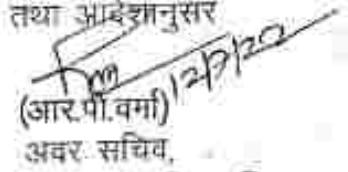 तथा आदेशानुसार
12/7/22
(आर.पी.वर्मा)
अवर सचिव,